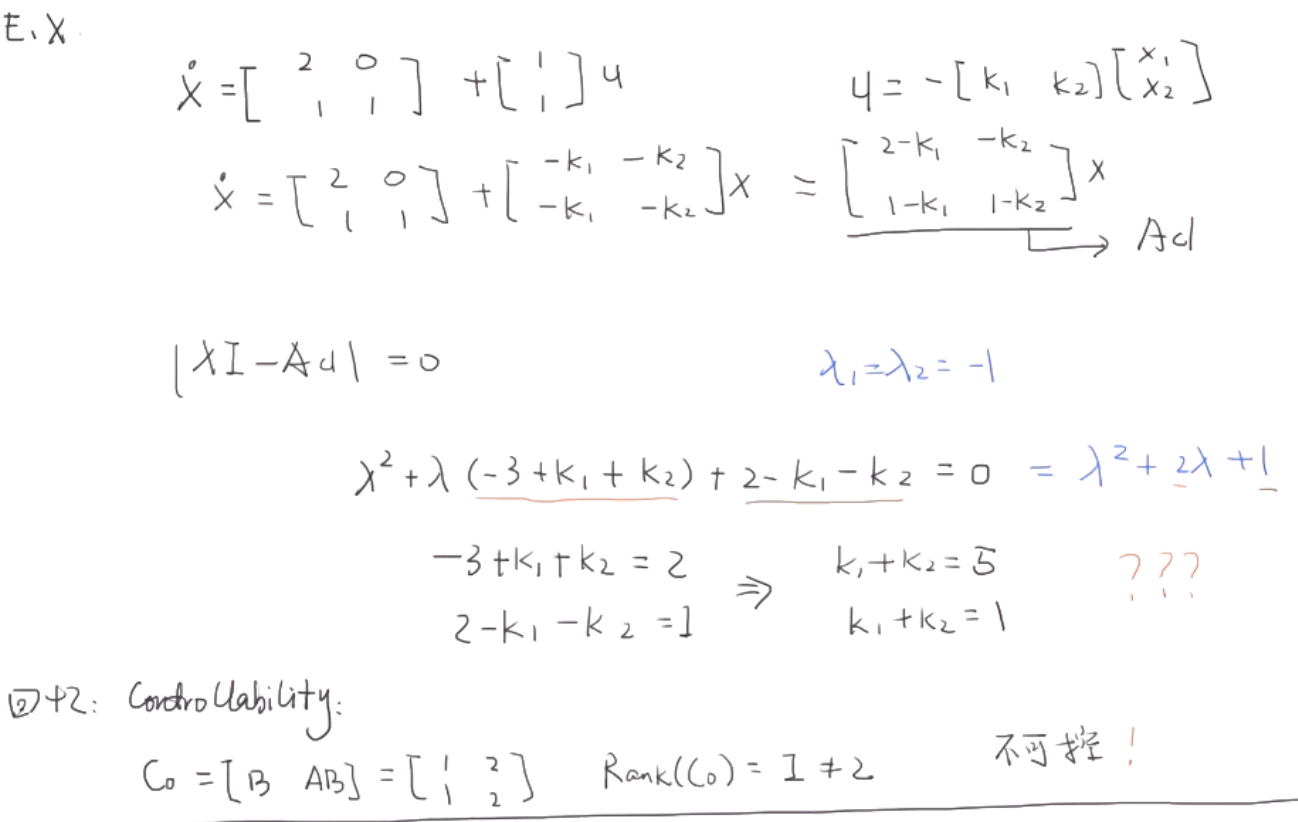 E.X.
ẋ = [2 0; 1 1] + [1; 1] u    u = -[k₁ k₂][x₁; x₂]
ẋ = [2 0; 1 1] + [-k₁ -k₂; -k₁ -k₂] x = [2-k₁ -k₂; 1-k₁ 1-k₂] x
→ Acl
|λI - Acl| = 0    λ₁=λ₂= -1
λ² + λ (-3 + k₁ + k₂) + 2 - k₁ - k₂ = 0 = λ² + 2λ + 1
-3 + k₁ + k₂ = 2 ⇒ k₁ + k₂ = 5    ???
2 - k₁ - k₂ = 1    k₁ + k₂ = 1
回忆: Controllability:
Co = [B AB] = [1 2; 1 2]    Rank(Co) = 1 ≠ 2    不可控!